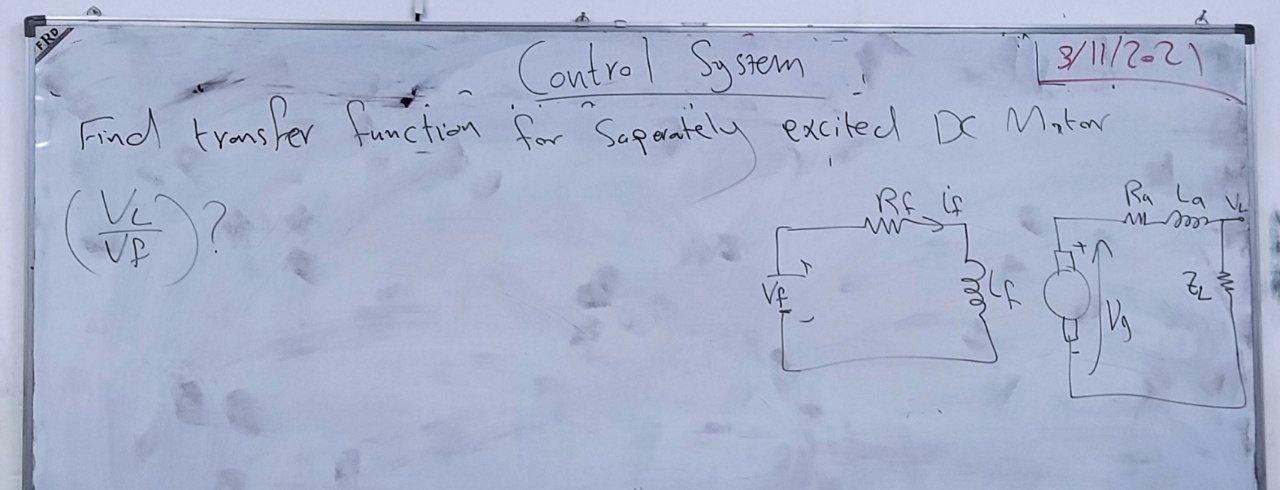 FRD
Control System
3/11/2021
Find transfer function for Saperately excited DC Motor
(VL/Vf)?
Rf if
Ra La VL
Vf + -
Lf
+ - Vg
ZL